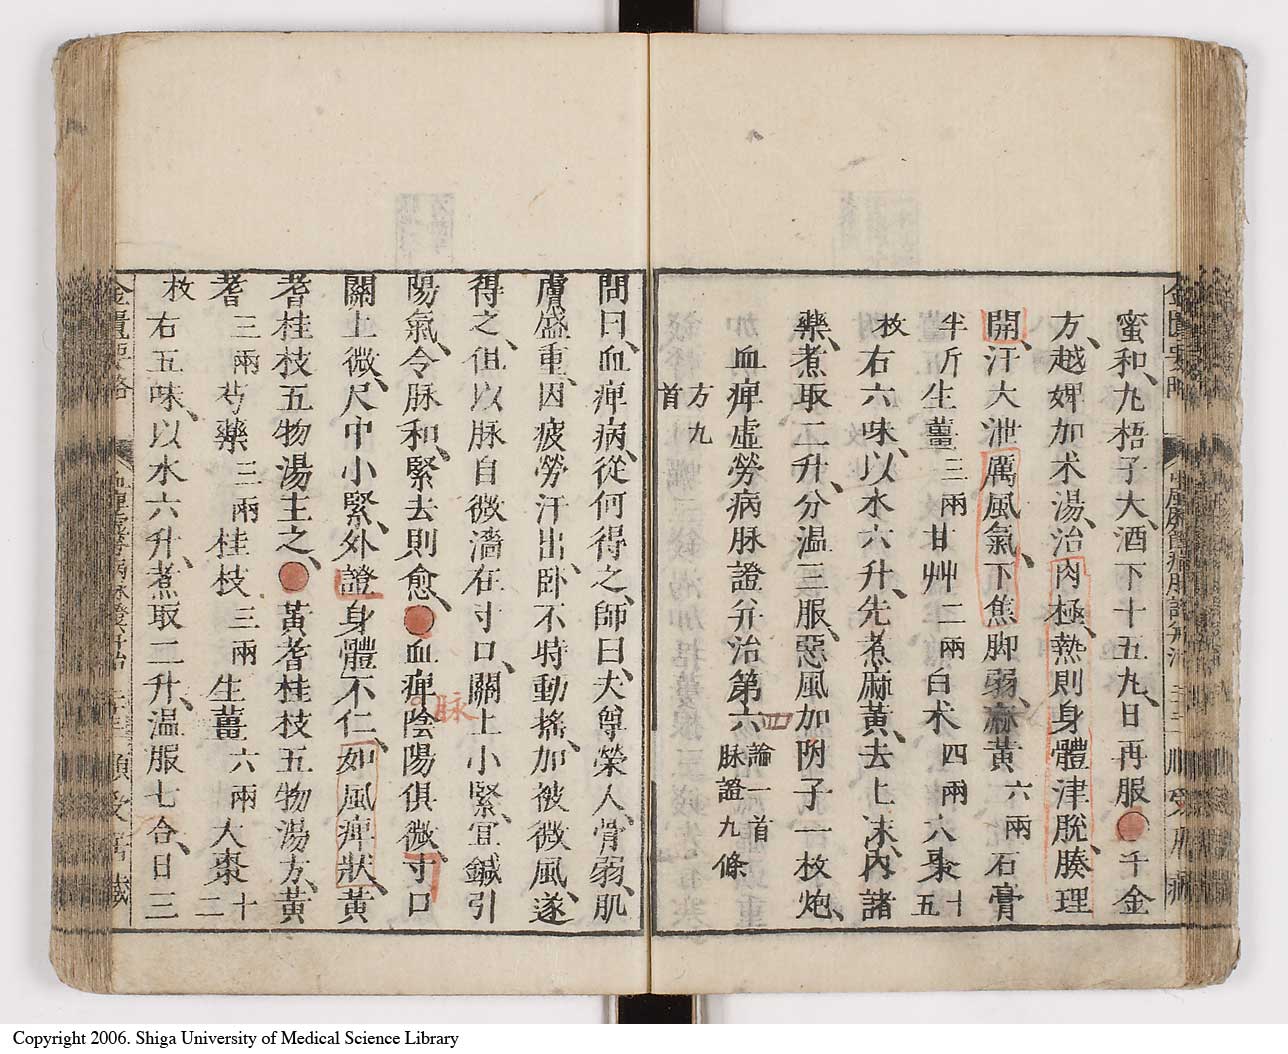 蜜和、九梧子大、酒下十五九、日再服、●千金
方、越婢加术湯、治肉極、熱則身體津脫、腠理
開、汗大泄、厲風氣、下焦脚弱、麻黃六兩石膏
半斤生薑三兩甘艸二兩白术四兩大棗十五
枚右六味、以水六升、先煮麻黃、去上沫、內諸
藥、煮取二升、分温三服、惡風加附子一枚炮、
血痺虛勞病脉證并治第六論一首脉證九條
方九首
問曰、血痺病、從何得之、師曰、夫尊榮人、骨弱、肌
膚盛重、因疲勞汗出、臥不時動搖、加被微風、遂
得之、但以脉自微濇在寸口、關上小緊、宜鍼引
陽氣、令脉和、緊去則愈、●血痺陰陽俱微、寸口
脉
關上微、尺中小緊、外證身體不仁、如風痺狀、黃
耆桂枝五物湯主之、●黃耆桂枝五物湯方、黃
耆三兩芍藥三兩桂枝三兩生薑六兩大棗十二
枚右五味、以水六升、煮取二升、温服七合、日三
金匱要略
Copyright 2006. Shiga University of Medical Science Library